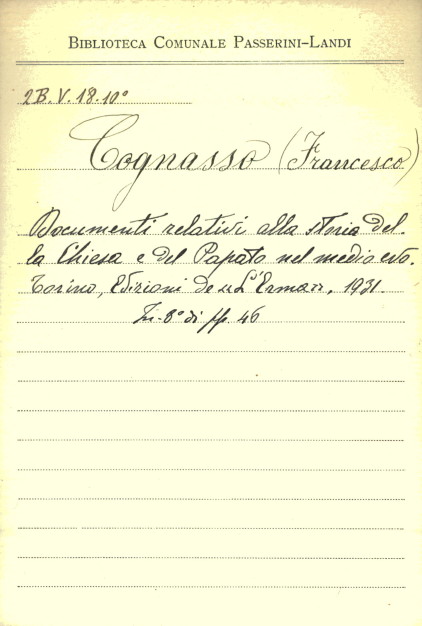 BIBLIOTECA COMUNALE PASSERINI-LANDI
2B.V.18.10°
Cognasso (Francesco)
Documenti relativi alla storia del-
la Chiesa e del Papato nel medio evo.
Torino, Edizioni de «L'Erma», 1931.
In-8° di pp. 46